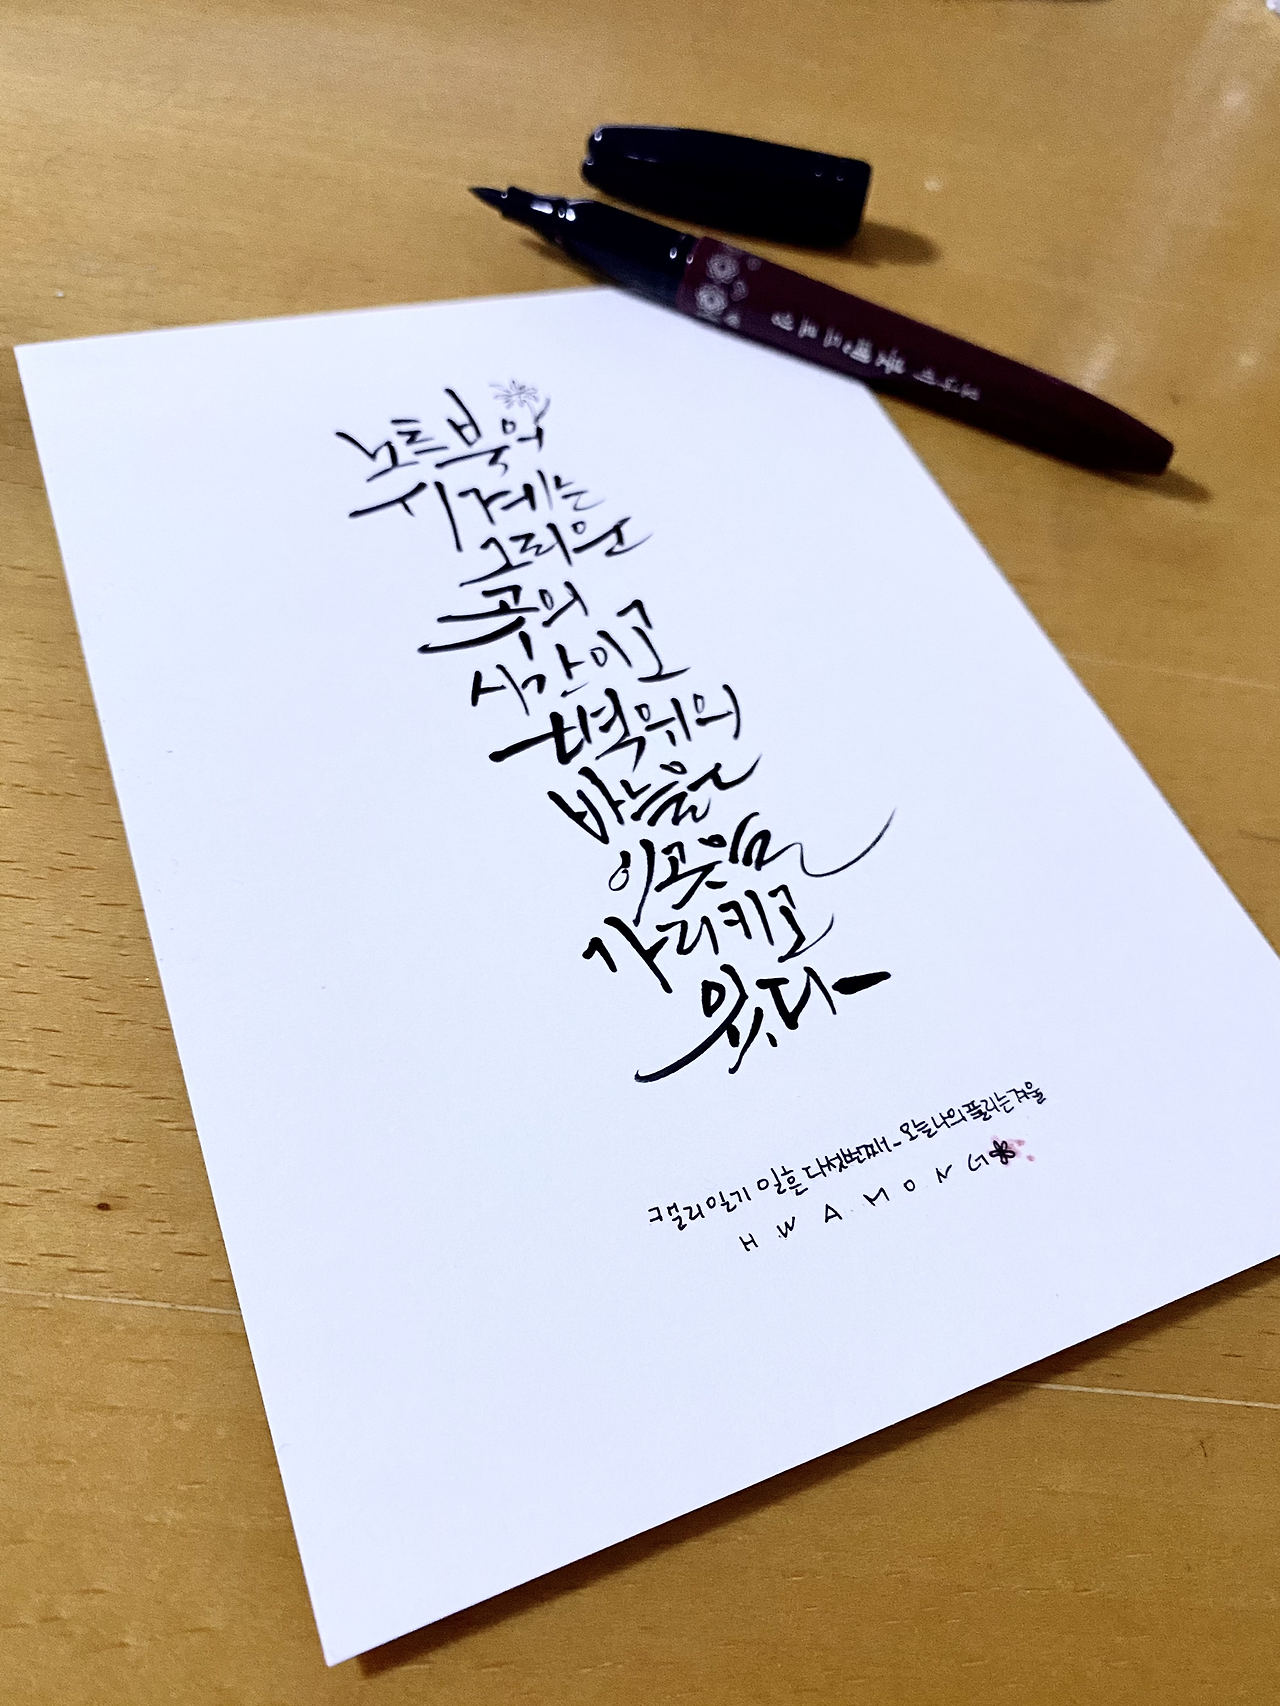 노트북의
시계는
그리운
곳의
시간이고
벽위의
바늘은
이곳을
가리키고
있다
캘리일기 일흔다섯번째 - 오늘 나의 물리는겨울
HWAMONG